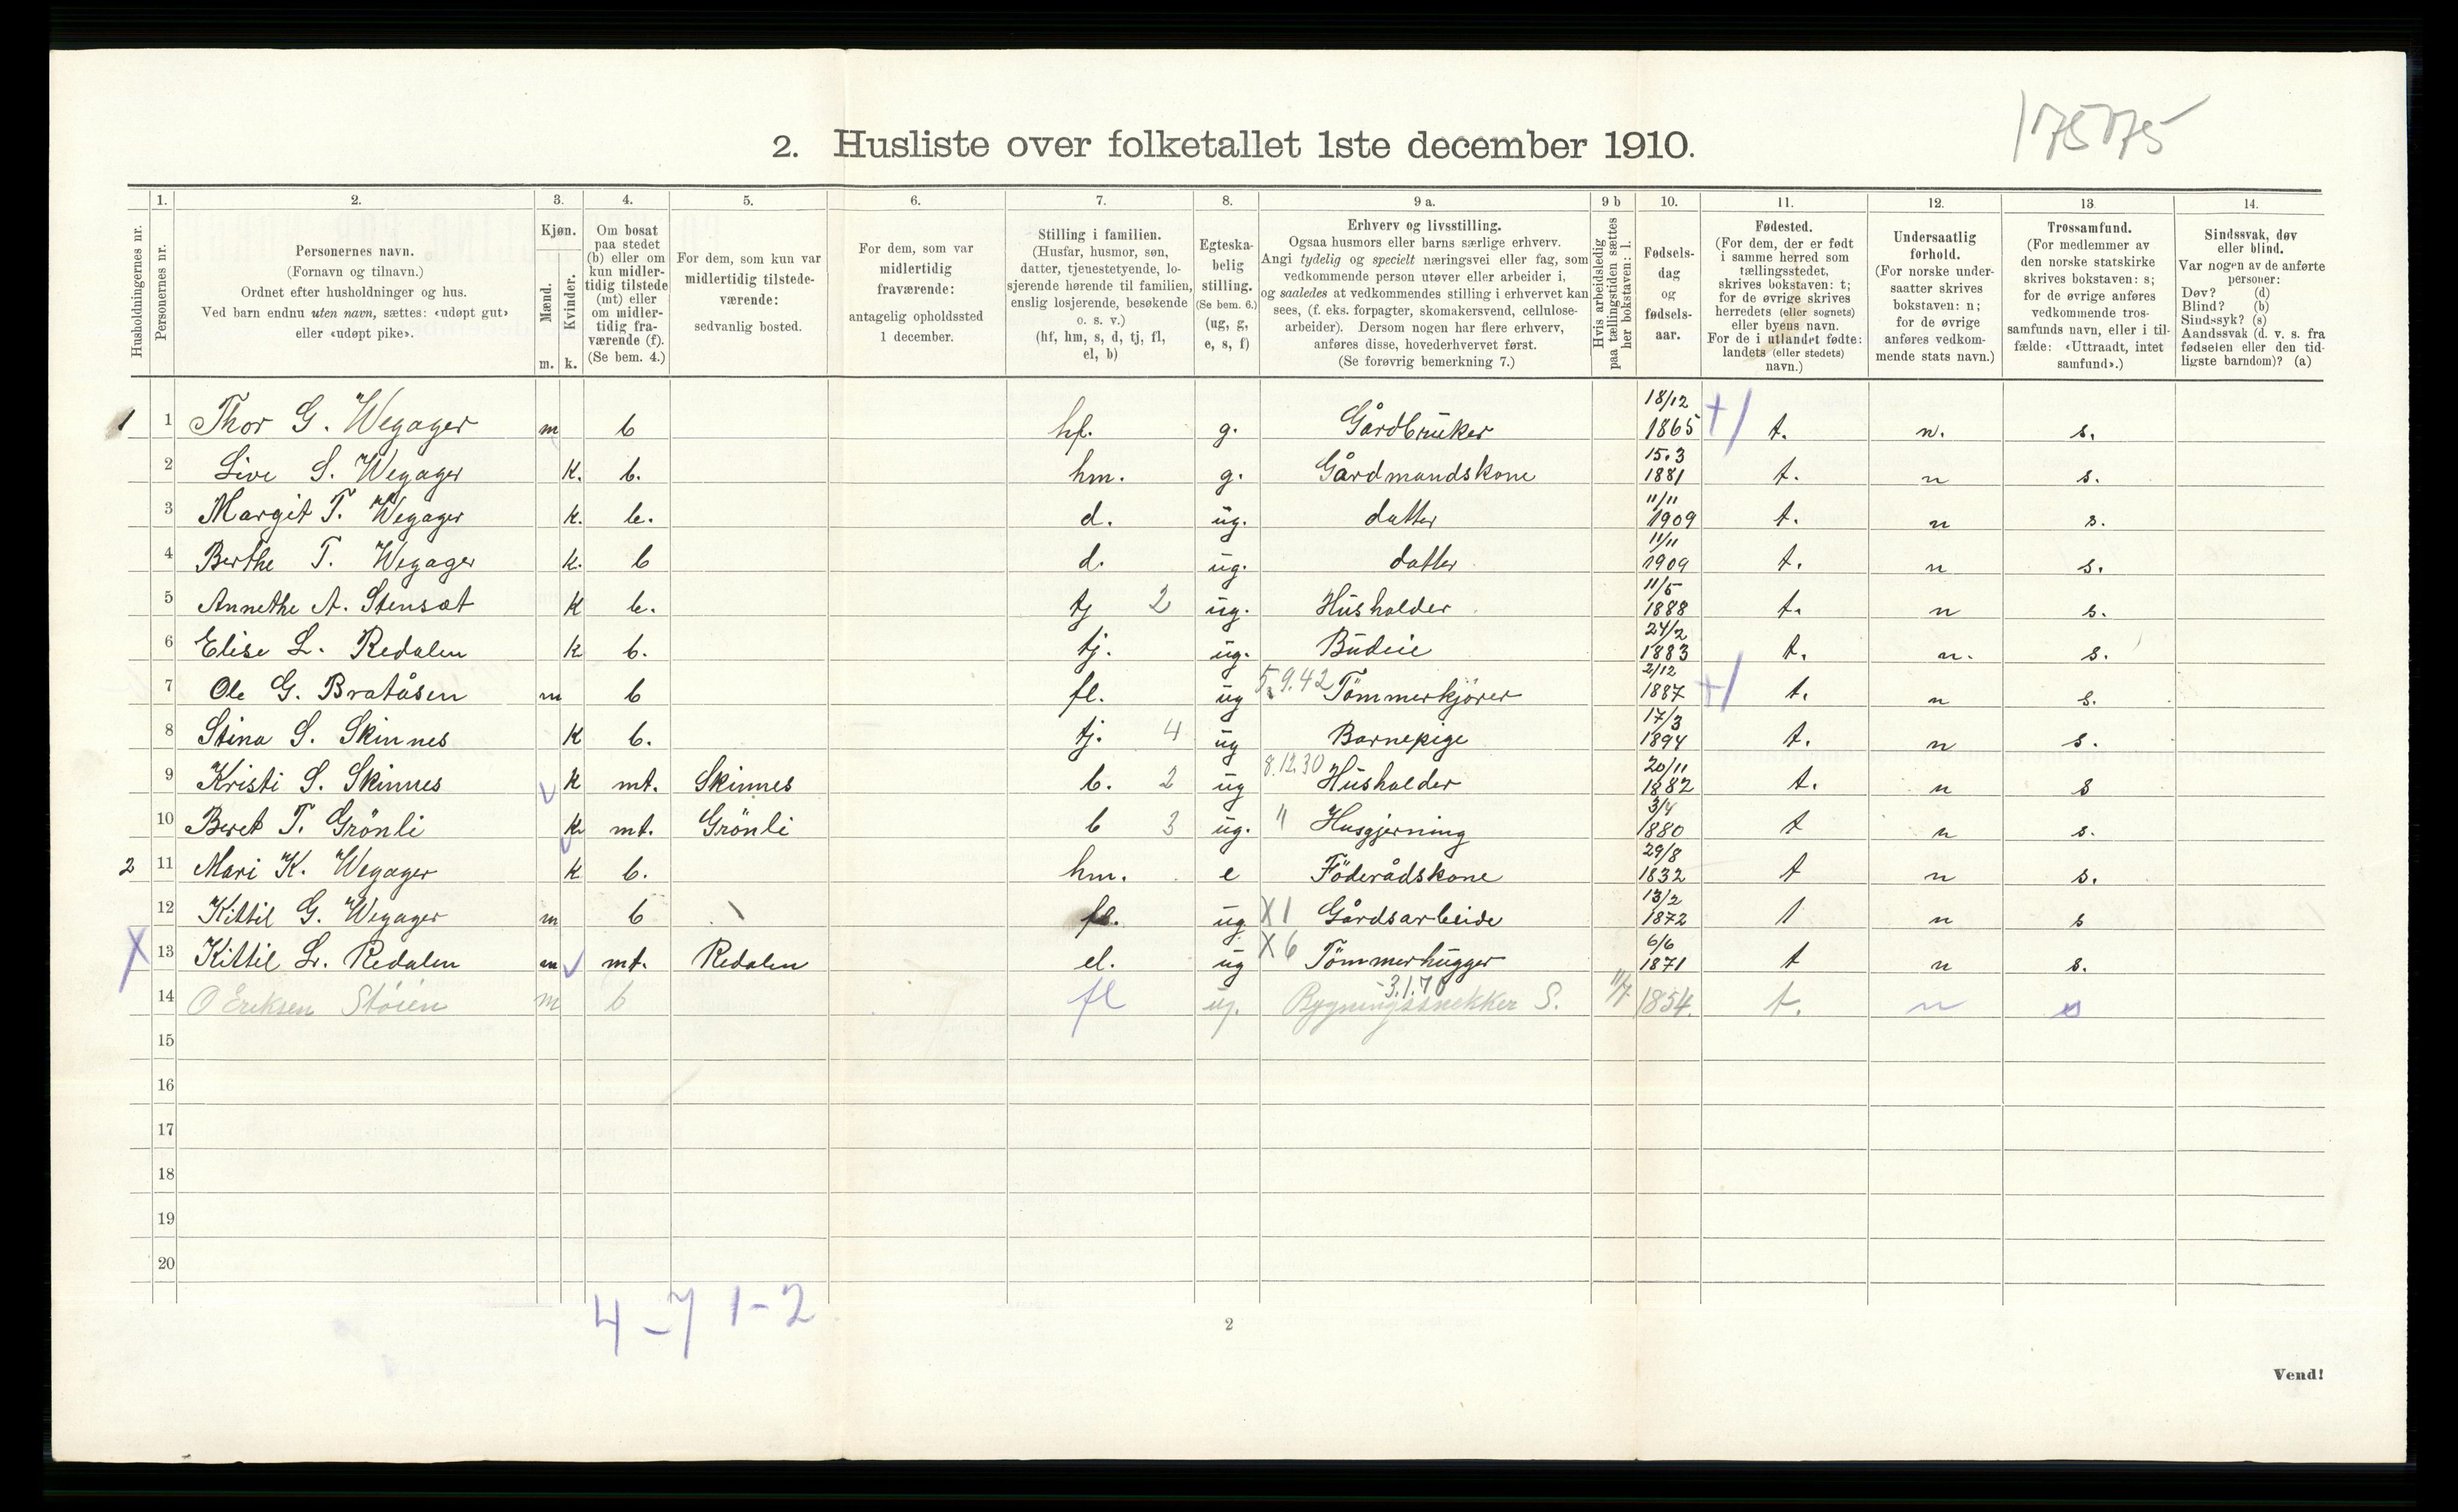 175 175
2. Husliste over folketallet 1ste december 1910.
1. 2. 3. 4. 5. 6. 7. 8. 9 a. 9 b 10. 11. 12. 13. 14.
Husholdningernes nr.
Personernes nr.
Personernes navn.
(Fornavn og tilnavn.)
Ordnet efter husholdninger og hus.
Ved barn endnu uten navn, sættes: «udøpt gut»
eller «udøpt pike».
Kjøn.
Mænd.
Kvinder.
m. k.
Om bosat
paa stedet
(b) eller om
kun midler-
tidig tilstede
(mt) eller
om midler-
tidig fra-
værende (f).
(Se bem. 4.)
For dem, som kun var
midlertidig tilstede-
værende:
sedvanlig bosted.
For dem, som var
midlertidig
fraværende:
antagelig opholdssted
1 december.
Stilling i familien.
(Husfar, husmor, søn,
datter, tjenestetyende, lo-
sjerende hørende til familien,
enslig losjerende, besøkende
o. s. v.)
(hf, hm, s, d, tj, fl,
el, b)
Egteska-
belig
stilling.
(Se bem. 6.)
(ug, g,
e, s, f)
Erhverv og livsstilling.
Ogsaa husmors eller barns særlige erhverv.
Angi tydelig og specielt næringsvei eller fag, som
vedkommende person utøver eller arbeider i,
og saaledes at vedkommendes stilling i erhvervet kan
sees, (f. eks. forpagter, skomakersvend, cellulose-
arbeider). Dersom nogen har flere erhverv,
anføres disse, hovederhvervet først.
(Se forøvrig bemerkning 7.)
Hvis arbeidsledig
paa tællingstiden sættes
her bokstaven: l.
Fødsels-
dag
og
fødsels-
aar.
Fødested.
(For dem, der er født
i samme herred som
tællingsstedet,
skrives bokstaven: t;
for de øvrige skrives
herredets (eller sognets)
eller byens navn.
For de i utlandet fødte:
landets (eller stedets)
navn.)
Undersaatlig
forhold.
(For norske under-
saatter skrives
bokstaven: n;
for de øvrige
anføres vedkom-
mende stats navn.)
Trossamfund.
(For medlemmer av
den norske statskirke
skrives bokstaven: s;
for de øvrige anføres
vedkommende tros-
samfunds navn, eller i til-
fælde: «Uttraadt, intet
samfund».)
Sindssvak, døv
eller blind.
Var nogen av de anførte
personer:
Døv? (d)
Blind? (b)
Sindssyk? (s)
Aandssvak (d. v. s. fra
fødselen eller den tid-
ligste barndom)? (a)
1 1 Thor G. Wegager m b hf. g. Gårdbruker 18/12 1865 t. n. s.
2 Live S. Wegager k. b. hm. g. Gårdmandskone 15.3 1881 t. n s.
3 Margit T. Wegager k. b. d. ug. datter 11/11 1909 t. n s.
4 Berthe T. Wegager k. b d. ug. datter 11/11 1909 t. n s.
5 Annethe A. Stensæt k b. tj 2 ug. Husholder 11/5 1888 t. n s.
6 Elise L. Redalen k b. tj. ug. Budeie 24/2 1883 t. n. s.
7 Ole G. Bratåsen m b fl. ug 5.9.42 Tömmerkjörer 2/12 1887 t. n s.
8 Stina S. Skinnes k b. tj. 4 ug Barnepige 17/3 1894 t. n s.
9 Kristi S. Skinnes k mt. Skinnes b. 2 ug 8.12.30 Husholder 20/11 1882 t. n s
10 Beret T. Grönli k mt. Grönli b 3 ug. " Husgjerning 3/4 1880 t n s.
2 11 Mari K. Wegager k b. hm. e Föderådskone 29/8 1832 t n s.
12 Kittil G. Wegager m b fl. ug X 1 Gårdsarbeide 13/2 1872 t n s
X 13 Kittil L. Redalen m mt. Redalen el. ug X 6 Tömmerhugger 6/6 1871 t n s.
14 O Eriksen Stöien m b fl ug. -3.1.70 Bygningssnekker S. 11/7 1854. t. n s
15
16
17
18
19
20
4-7 1-2
2
Vend!